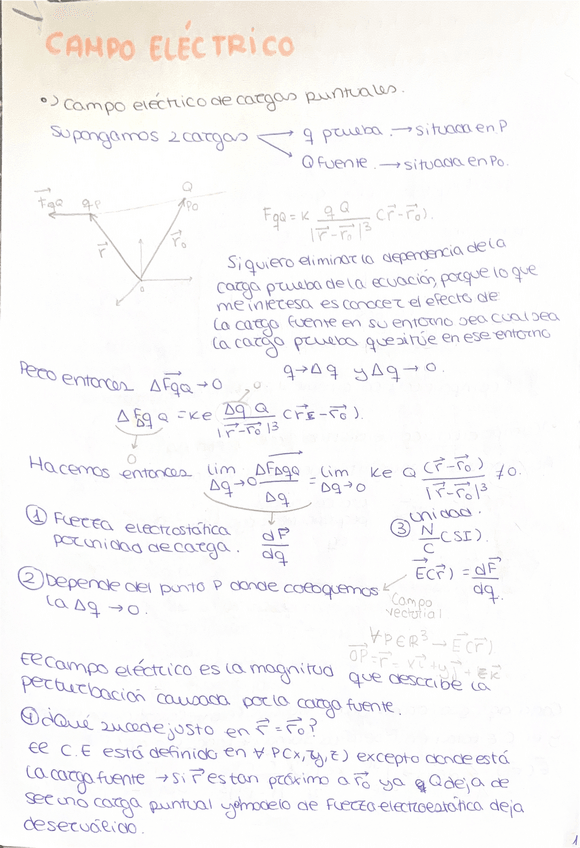 CAMPO ELÉCTRICO
•) Campo eléctrico de cargas puntuales.
Supongamos 2 cargas
q prueba. → situada en P
Q fuente. → situada en P₀.
F⃗qQ
qP
Q
P₀
r⃗
r⃗₀
0
FqQ = K qQ/|r⃗-r⃗₀|³ (r⃗-r⃗₀).
Si quiero eliminar la dependencia de la
carga prueba de la ecuación, porque lo que
me interesa es conocer el efecto de
la carga fuente en su entorno sea cual sea
la carga prueba que sitúe en ese entorno
q → Δq y Δq → 0.
Pero entonces ΔF⃗qQ → 0
ΔFΔqQ = Ke Δq Q/|r⃗-r⃗₀|³ (r⃗-r⃗₀).
0
0
Hacemos entonces lim Δq→0 ΔF⃗ΔqQ/Δq = lim Δq→0 Ke Q (r⃗-r⃗₀)/|r⃗-r⃗₀|³ ≠0.
① Fuerza electrostática
por unidad de carga.
dF⃗/dq
unidad.
③ N/C (SI).
E⃗(r⃗) = dF⃗/dq.
② Depende del punto P donde coloquemos
la Δq → 0.
Campo
vectorial
∀P∈R³ → E⃗(r⃗)
OP⃗ = r⃗ = xi⃗ + yj⃗ + zk⃗
El campo eléctrico es la magnitud que describe la
perturbación causada por la carga fuente.
④ ¿Qué sucede justo en r⃗ = r⃗₀?
El C.E está definido en ∀ P(x,y,z) excepto donde está
la carga fuente → si r⃗ es tan próximo a r⃗₀ ya Q deja de
ser una carga puntual y el modelo de fuerza electrostática deja
de ser válido.
1